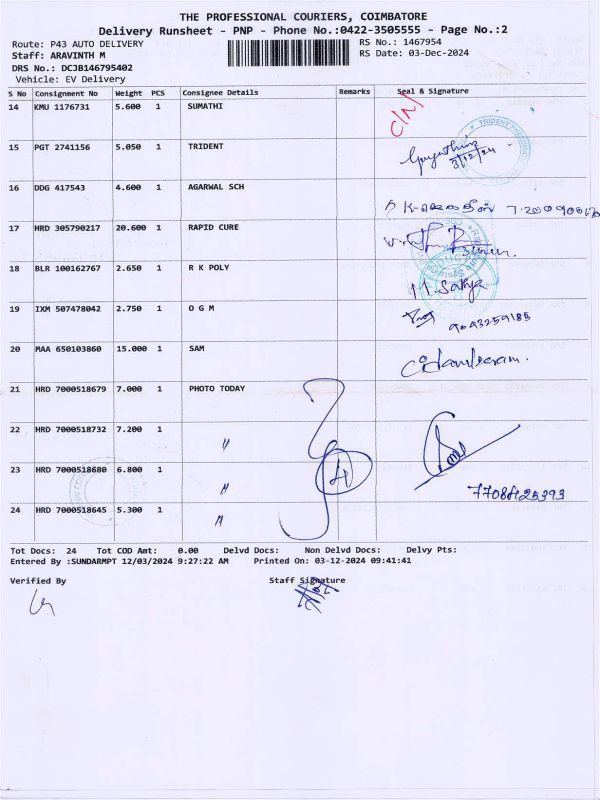 THE PROFESSIONAL COURIERS, COIMBATORE
Delivery Runsheet - PNP - Phone No.:0422-3505555 - Page No.:2
Route: P43 AUTO DELIVERY
RS No.: 1467954
Staff: ARAVINTH M
RS Date: 03-Dec-2024
DRS No.: DCJB146795402
Vehicle: EV Delivery
S No Consignment No Weight PCS Consignee Details Remarks Seal & Signature
14 KMU 1176731 5.600 1 SUMATHI
C/N/
15 PGT 2741156 5.050 1 TRIDENT
3/12/24
TRIDENT
16 DDG 417543 4.600 1 AGARWAL SCH
17 HRD 305790217 20.600 1 RAPID CURE
18 BLR 100162767 2.650 1 R K POLY
M. Sathya
19 IXM 507478042 2.750 1 O G M
9043259185
20 MAA 650103860 15.000 1 SAM
21 HRD 7000518679 7.000 1 PHOTO TODAY
22 HRD 7000518732 7.200 1 "
4
23 HRD 7000518680 6.800 1 "
24 HRD 7000518645 5.300 1 "
Tot Docs: 24 Tot COD Amt: 0.00 Delvd Docs: Non Delvd Docs: Delvy Pts:
Entered By :SUNDARMPT 12/03/2024 9:27:22 AM Printed On: 03-12-2024 09:41:41
Verified By Staff Signature